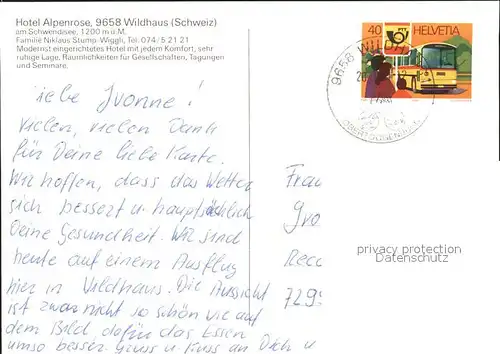 Hotel Alpenrose, 9658 Wildhaus (Schweiz)
am Schwendisee, 1200 m ü. M.
Familie Niklaus Stump-Wiggli, Tel. 074/5 21 21
Modernst eingerichtetes Hotel mit jedem Komfort, sehr
ruhige Lage, Räumlichkeiten für Gesellschaften, Tagungen
und Seminare.
40 HELVETIA
9658 WILDH
iebe Yvonne!
Vielen, vielen Dank
für Deine liebe Karte.
Wir hoffen, dass das Wetter
sich bessert u. hauptsächlich
Deine Gesundheit. Wir sind
heute auf einem Ausflug
hier in Wildhaus. Die Aussicht
ist zwar nicht so schön wie auf
dem Bild dafür das Essen
umso besser. Gruss u. Kuss an Dich u
Frau
Yvo
Recc
729
privacy protection
Datenschutz